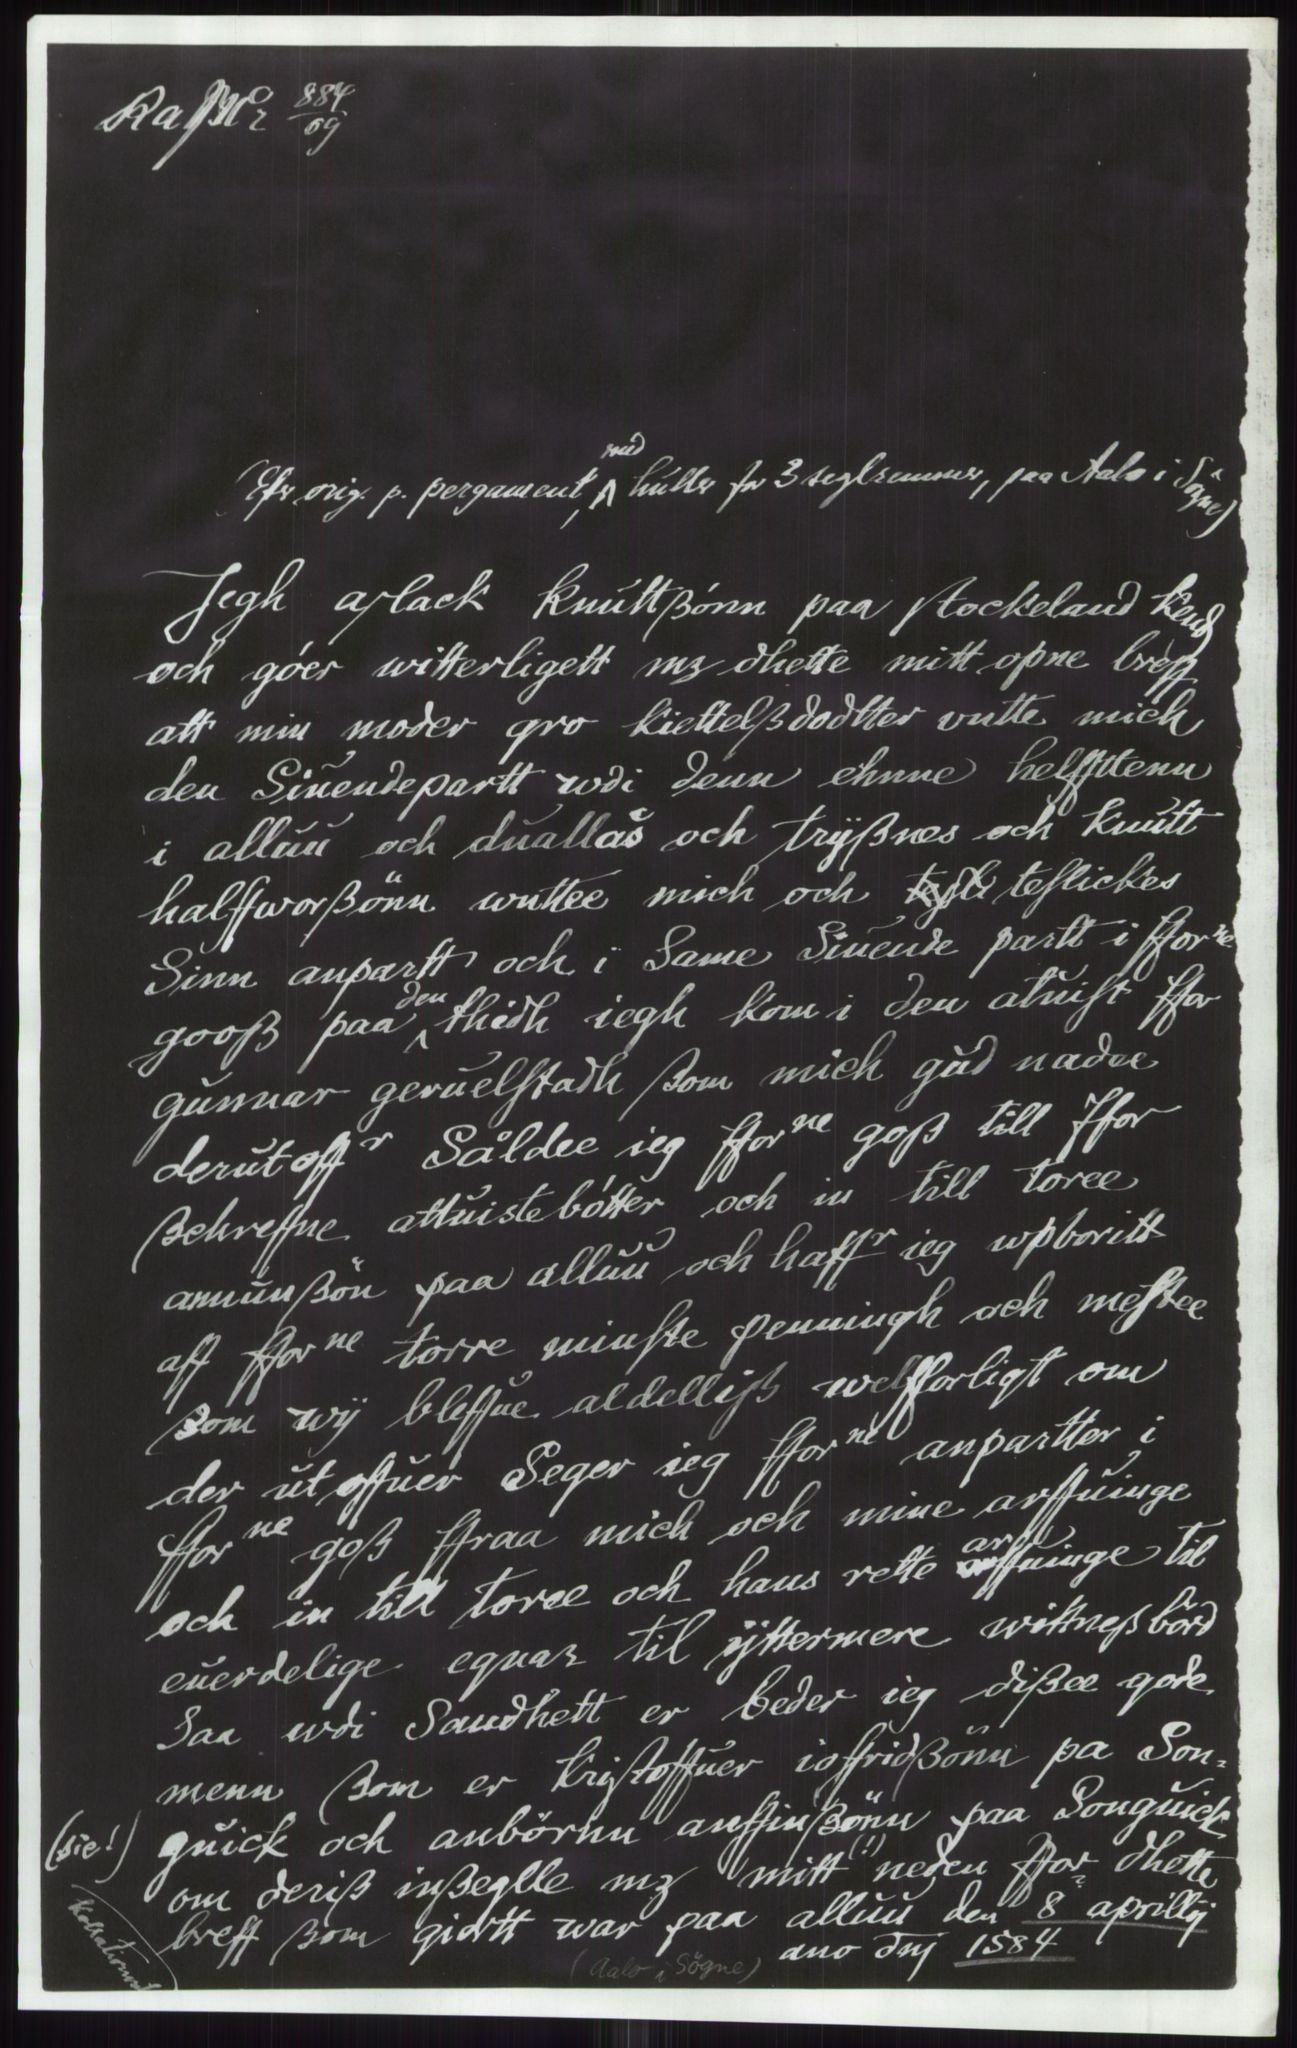 884
09
(Efter orig. p. pergament, med huller for 3 seglremmer, paa Aalo i Søgne)
Jegh aslack knuttßónn paa stockeland kend
och góer witterligett mz dhette mitt opne breff
att min moder gro kiettelßdodtter vntte mich
den Siuendepartt wdi denn ehnne helffttenn
i alluu och duallas och tryßnes och knutt
halffworßönn wnttee mich och teslickes
Sinn anpartt och i Same Siuende partt i fforne
gooß paa den thidh iegh kom i den atuist ffor
gunnar geruelstadh ßom mich gud nadee
derut offr Såldee ieg fforne goß till ffor
ßchreffne attuistebótter och in till toree
amunßön paa alluu och haffr ieg wpboritt
aff fforne torre minste penningh och mestee
ßom wÿ bleffue aldelliß welfforligt om
der ut offuer Seger ieg fforne anpartter i
fforne goß ffraa mich och mine arffuinge
och in till toree och hans rette arffuinge til
euerdelige egnar til ÿttermere wittneßbörd
Saa wdi Sandhett er beder ieg dißee gode
menn ßom er kristoffuer ioffridßönn pa Son-
guick och anbörnn anffinßönn paa Songuick
(sic!) om deriß inßeglle mz mitt (!) neden ffor dhette
breff ßom giórtt war paa alluu den 8 aprillij
ano dnj 1584
(Aalo i Søgne)